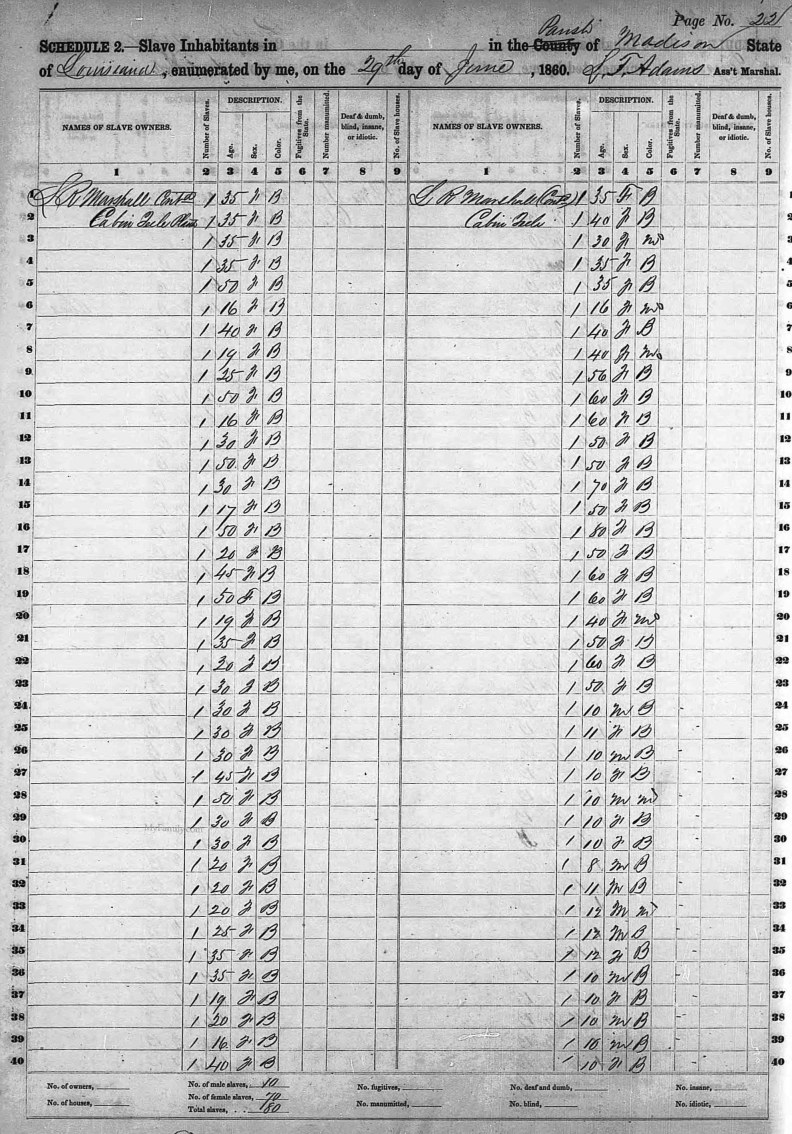 Page No. 22
Parish
SCHEDULE 2.—Slave Inhabitants in in the County of Madison State
of Louisiana, enumerated by me, on the 29th day of June, 1860. S. F. Adams Ass't Marshal.
NAMES OF SLAVE OWNERS. Number of Slaves. DESCRIPTION. Age. Sex. Color. Fugitives from the State. Number manumitted. Deaf & dumb, blind, insane, or idiotic. No. of Slave houses. NAMES OF SLAVE OWNERS. Number of Slaves. DESCRIPTION. Age. Sex. Color. Fugitives from the State. Number manumitted. Deaf & dumb, blind, insane, or idiotic. No. of Slave houses.
1 2 3 4 5 6 7 8 9 1 2 3 4 5 6 7 8 9
1 Marshall 1 35 F B R Marshall 1 35 F B 1
2 Cabin 1 35 F B Cabin 1 40 F B 2
3 1 35 F B 1 30 F M 3
4 1 35 F B 1 35 F B 4
5 1 50 F B 1 35 F B 5
6 1 16 F B 1 16 F M 6
7 1 40 F B 1 40 F B 7
8 1 19 F B 1 40 F M 8
9 1 25 F B 1 56 F B 9
10 1 50 F B 1 60 F B 10
11 1 16 F B 1 60 F B 11
12 1 30 F B 1 50 F B 12
13 1 50 F B 1 50 F B 13
14 1 30 F B 1 70 F B 14
15 1 17 F B 1 50 F B 15
16 1 50 F B 1 80 F B 16
17 1 20 F B 1 50 F B 17
18 1 45 F B 1 60 F B 18
19 1 50 F B 1 60 F B 19
20 1 19 F B 1 40 F M 20
21 1 35 F B 1 50 F B 21
22 1 F B 1 60 F B 22
23 1 30 F B 1 50 F B 23
24 1 30 F B 1 10 M B 24
25 1 30 F B 1 11 F B 25
26 1 30 F B 1 10 M B 26
27 1 45 F B 1 10 F B 27
28 1 50 F B 1 10 M M 28
29 1 30 F B 1 10 F B 29
30 1 30 F B 1 10 F B 30
31 1 20 F B 1 8 M B 31
32 1 20 F B 1 11 M B 32
33 1 20 F B 1 12 M M 33
34 1 25 F B 1 12 M B 34
35 1 35 F B 1 12 F B 35
36 1 35 F B 1 10 M B 36
37 1 19 F B 1 10 F B 37
38 1 20 F B 1 10 M B 38
39 1 16 F B 1 10 M B 39
40 1 40 F B 1 10 F B 40
MyFamily.com
No. of owners, No. of male slaves, 10 No. fugitives, No. deaf and dumb, No. insane,
No. of houses, No. of female slaves, 70 No. manumitted, No. blind, No. idiotic,
Total slaves, 80